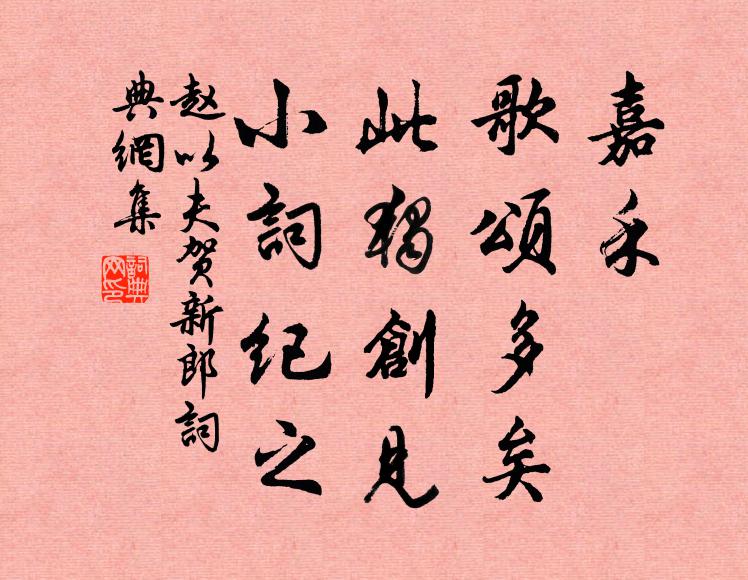 嘉禾
歌頌多矣
此獨創見
小詞紀之
赵以夫贺新郎詞
典網集
詞典網印